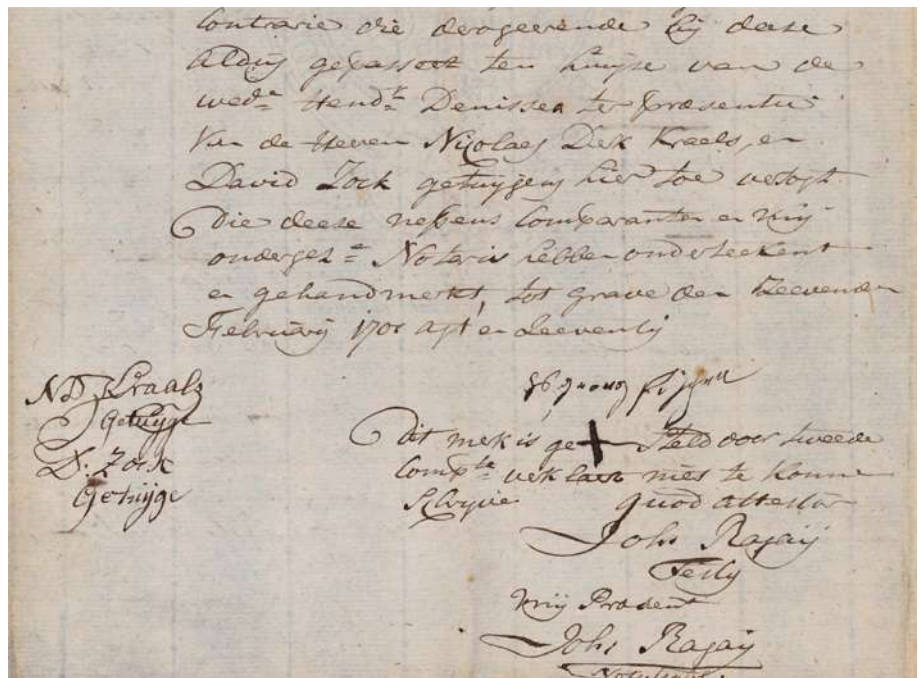 Contrarie die derogeerende bij deese
Aldus gepasseert ten huijse van de
wed.e Hend.k Denissen ter præsentie
Van de Heeren Nicolaes Dirk Kraels, en
David Zock getuijgens hier toe versogt
Die deese neffens Comparanten en mij
onderget.e Notaris hebben onderteekent
en gehandmerkt, tot Grave den Zeevenden
Februarij 1700 agt en Zeeventig
ND Kraals
Getuijge
D: Zock
Getuijge
Dit merk is ge + steld door tweede
Comp.te verklaert niet te konnen
Schryven quod attestor
Joh: Ragaij
Testis
mij Præsent
Joh: Ragaij